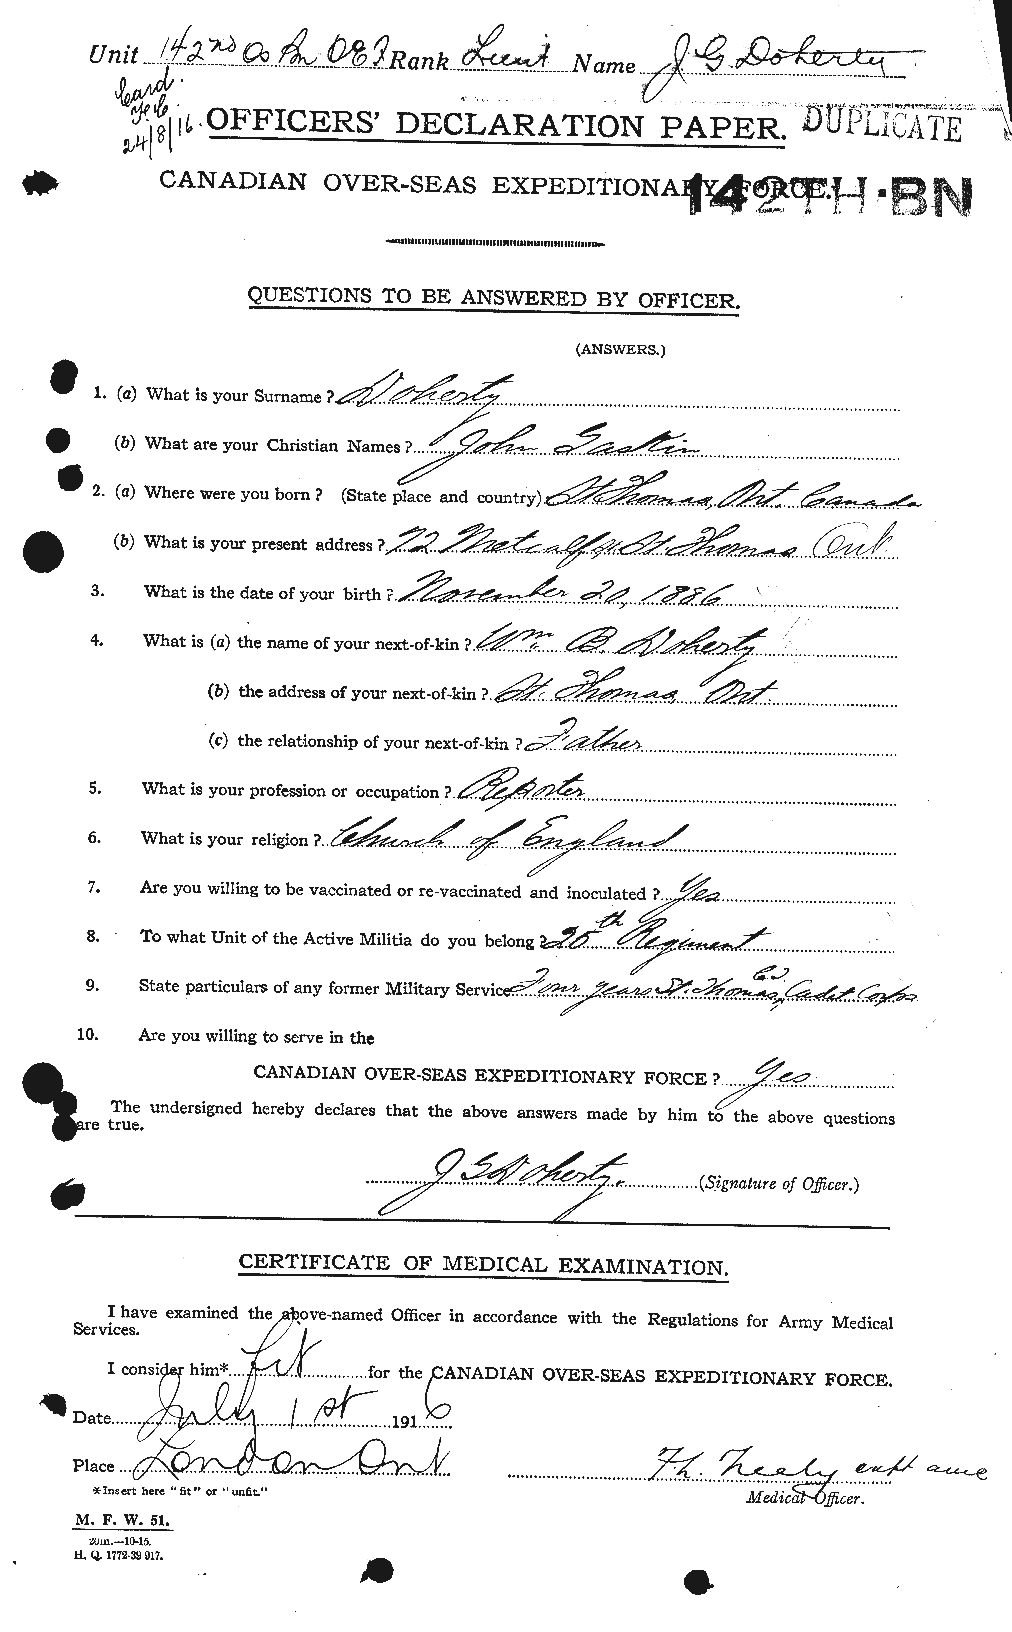 Unit 142nd Os Bn OEF Rank Lieut Name J. G. Doherty
Card
24/8/16
OFFICERS' DECLARATION PAPER. DUPLICATE
CANADIAN OVER-SEAS EXPEDITIONARY FORCE.
142TH.BN
QUESTIONS TO BE ANSWERED BY OFFICER.
(ANSWERS.)
1. (a) What is your Surname ? Doherty
(b) What are your Christian Names ? John Gaskin
2. (a) Where were you born ? (State place and country) St. Thomas, Ont. Canada
(b) What is your present address ? 72 Metcalfe St. Thomas Ont.
3. What is the date of your birth ? November 20, 1886
4. What is (a) the name of your next-of-kin ? Wm. B. Doherty
(b) the address of your next-of-kin ? St. Thomas, Ont.
(c) the relationship of your next-of-kin ? Father
5. What is your profession or occupation ? Reporter
6. What is your religion ? Church of England
7. Are you willing to be vaccinated or re-vaccinated and inoculated ? Yes
8. To what Unit of the Active Militia do you belong ? 25th Regiment
9. State particulars of any former Military Service Four years St. Thomas, Cadet Corps
10. Are you willing to serve in the
CANADIAN OVER-SEAS EXPEDITIONARY FORCE ? Yes
The undersigned hereby declares that the above answers made by him to the above questions
are true.
J G Doherty. (Signature of Officer.)
CERTIFICATE OF MEDICAL EXAMINATION.
I have examined the above-named Officer in accordance with the Regulations for Army Medical
Services.
I consider him* fit for the CANADIAN OVER-SEAS EXPEDITIONARY FORCE.
Date July 1st 1916
Place London Ont
*Insert here "fit" or "unfit."
Neely capt amc
Medical Officer.
M. F. W. 51.
20m.—10-15.
H. Q. 1772-39 917.